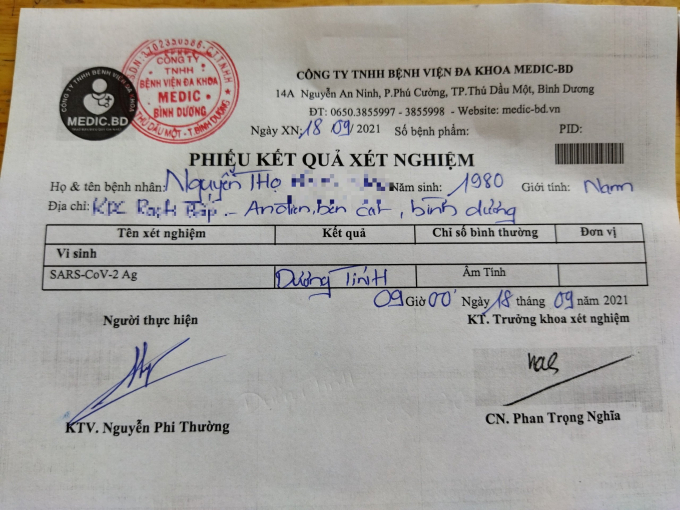 CÔNG TY TNHH BỆNH VIỆN ĐA KHOA MEDIC-BD
14A Nguyễn An Ninh, P.Phú Cường, TP.Thủ Dầu Một, Bình Dương
ĐT: 0650.3855997 - 3855998 - Website: medic-bd.vn
CÔNG TY TNHH BỆNH VIỆN ĐA KHOA
MEDIC.BD
CÔNG TY
TNHH
BỆNH VIỆN ĐA KHOA
MEDIC
BÌNH DƯƠNG
THỦ DẦU MỘT - T. BÌNH DƯƠNG
Ngày XN: 18 09/2021 Số bệnh phẩm: PID:
PHIẾU KẾT QUẢ XÉT NGHIỆM
Họ & tên bệnh nhân: Nguyễn Thọ Năm sinh: 1980 Giới tính: Nam
Địa chỉ: An điền, bến cát, bình dương
Tên xét nghiệm Kết quả Chỉ số bình thường Đơn vị
Vi sinh
SARS-CoV-2 Ag Dương Tính Âm Tính
09 Giờ 00' Ngày 18 tháng 09 năm 2021
Người thực hiện KT. Trưởng khoa xét nghiệm
KTV. Nguyễn Phi Thường CN. Phan Trọng Nghĩa